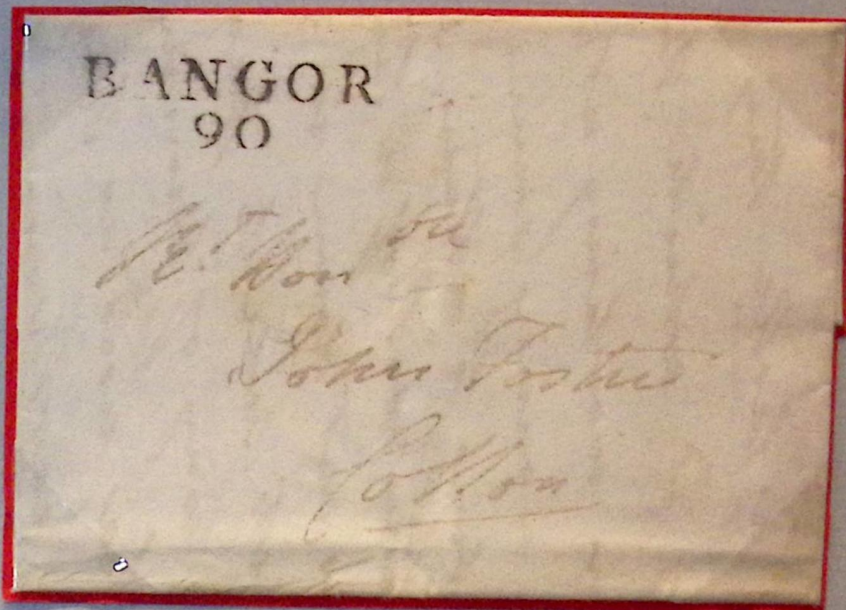 BANGOR
90
Rt Honble
John Foster
Collon